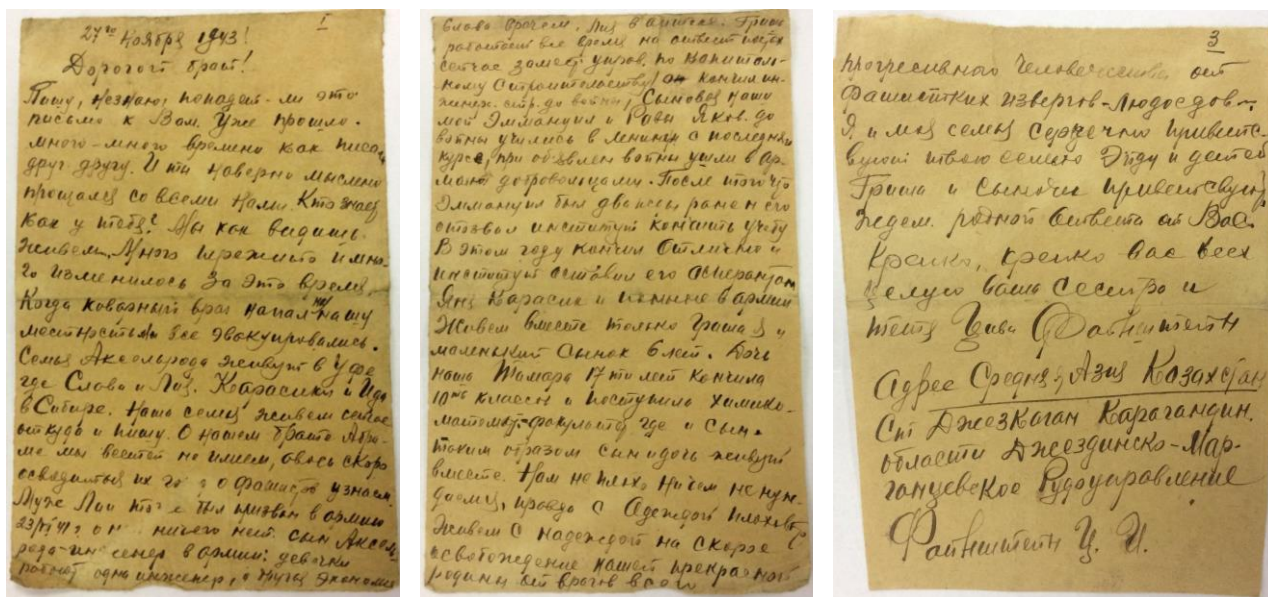 27го Ноября 1943! I
Дорогой брат!
Пишу, незнаю, попадет-ли это
письмо к Вам. Уже прошло
много-много времени как писа
друг другу. И ты наверно мыслено
прощался со всеми нами. Кто знает
как у тебя? Мы как видишь
живем. Много пережито и мно-
го изменилось за это время.
Когда коварный враг напал на нашу
местность мы все эвакуировались.
Семья Аксельрода живут в Уфе
где Слова и Лиз. Карасики и Ида
в Сибире. Наша семья живем сейчас
откуда и пишу. О нашем брате Абра-
ме мы вестей не имеем, авось скоро
освободиться их го о фашистов узнаем.
Муж Лии тоже был призван в армию
23/VI 41 о н ничего нет. Сын Аксель
рода-инженер в армии; девочки
работ одна инженер, а другая Экономис
Слава врачем, Лиз в аптеке. Гриша
работает все время на ответ постах
сейчас замест. управ. по капиталь-
ному строительству он кончил ин-
женер. стр. до войны, Сыновья наши
мой Эммануил и Ровы Яков. до
войны учились в Ленингр с последних
курсе, при объявлен войны ушли в ар-
мию добровольцами. После того что
Эммануил был дважды ранен его
отозвал институт кончить учебу
В этом году кончил отлично и
институт оставил его аспирантом
Яша Карасик и поныне в армии
Живем вместе только Гриша я и
маленький сынок 6 лет. Дочь
наша Тамара 17 ти лет кончила
10ть классы и поступила химико-
факультет где и сын.
таким образом сын и дочь живут
вместе. Нам не плохо ничем не нуж
даемся, правда с одеждой плохова
Живем с надеждой на скорое
освобождение нашей прекрасной
родины от врагов всего
3
прогресивного человечества от
фашистких извергов-людоедов.
Я и моя семья сердечно приветс-
вуют твою семью Эйду и детей
Гриша и сыночек приветствуют
Ждем. родной ответа от Вас.
Крепко, крепко вас всех
целую ваша сестра и
тетя Цива Файнштейн
Адрес Средняя Азия Казахстан
Ст Джезказган Карагандин.
области Джездинско-Мар-
ганцевское Рудоуправление
Файнштейн Ц. И.